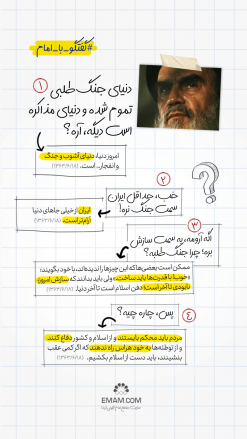 #گفتگو_با_امام
۱
دنیای جنگ طلبی
تموم شده و دنیای مذاکره
است دیگه، آره؟
امروز دنیا، دنیای آشوب و جنگ
و انفجار... است. (۱۳۶۳/۶/۱۸)
۲
خب، حداقل ایران
سمت جنگ نره!
ایران از خیلی جاهای دنیا
آرام‌تر است. (۱۳۶۳/۶/۱۸)
۳
اگه آرومه، یه سمت سازش
بره! چرا جنگ طلبه؟
ممکن است بعضی‌ها که این چیزها را ندیده‌اند، با خود بگویند:
«خوب! با قدرت‌ها باید ساخت»، ولی باید بدانند که سازش امروز،
نابودی تا آخر است؛ دفن اسلام است تا آخر دنیا. (۱۳۶۳/۶/۱۸)
۴
پس، چاره چیه؟
مردم باید محکم بایستند و از اسلام و کشور دفاع کنند
و از توطئه‌ها به خود هراس راه ندهند که اگر کمی عقب
بنشینند، باید دست از اسلام بکشیم. (۱۳۶۳/۶/۱۸)
EMAM.COM